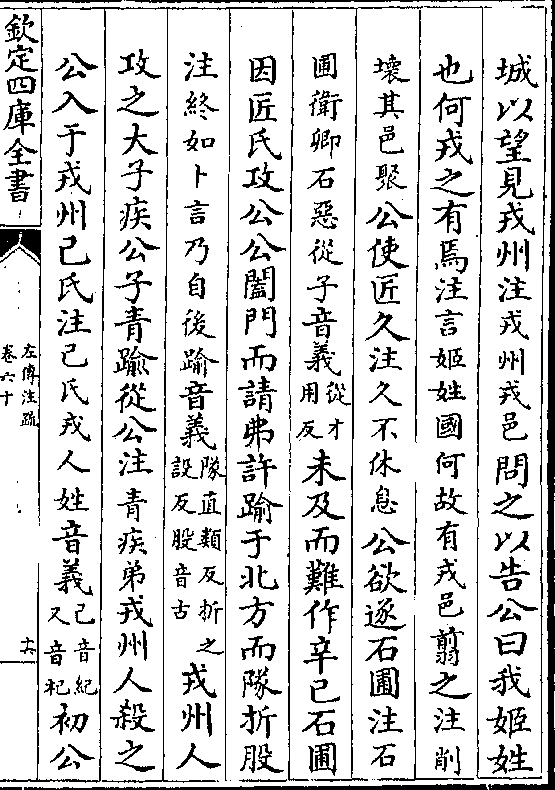 城以望見戎州注戎州戎邑問之以告公曰我姬姓
也何戎之有焉注言姬姓國何故有戎邑翦之注削
壞其邑聚公使匠久注久不休息公欲逐石圃注石
圃衛卿石惡從子音義從才用反未及而難作辛巳石圃
因匠氏攻公公闔門而請弗許踰于北方而隊折股
注終如卜言乃自後踰音義隊直類反折之設反股音古戎州人
攻之大子疾公子青踰從公注青疾弟戎州人殺之
公入于戎州己氏注己氏戎人姓音義己音紀又音杞初公
欽定四庫全書
左傳注疏
卷六十
十六